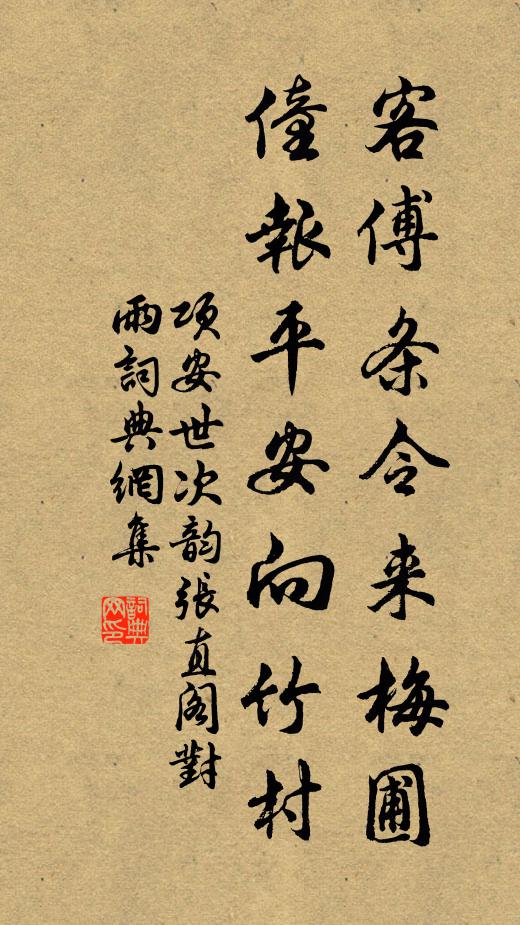 客傅条令来梅圃
僮報平安向竹村
項安世次韵張直阁對
雨詞典網集
詞典网印